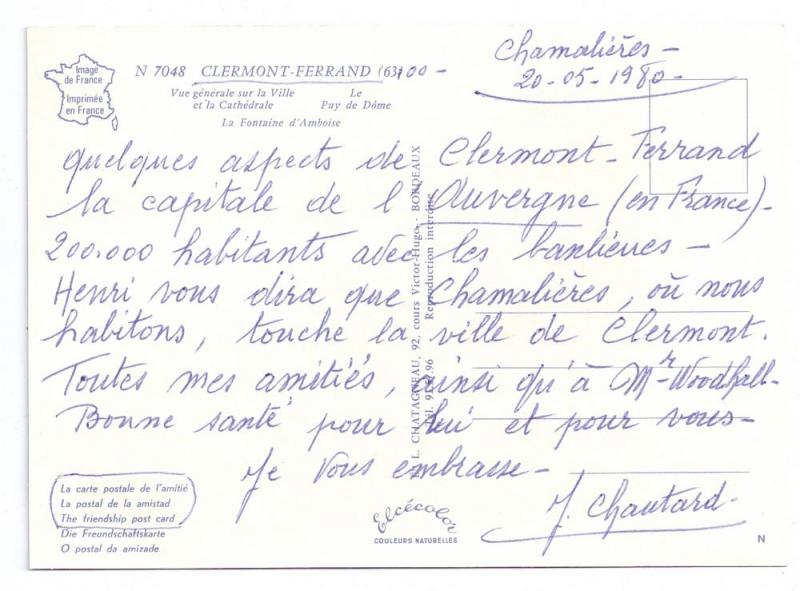 Chamalières -
20-05-1980-
Image
de France
Imprimée
en France
N 7048 CLERMONT-FERRAND (63)100 -
Vue générale sur la Ville
et la Cathédrale
Le
Puy de Dôme
La Fontaine d'Amboise
Quelques aspects de Clermont-Ferrand
la capitale de l'Auvergne (en France)-
200.000 habitants avec les banlieues -
Henri vous dira que Chamalières, où nous
habitons, touche la ville de Clermont.
Toutes mes amitiés, ainsi qu'à Mr Woodhall-
Bonne santé pour lui et pour vous-
Je vous embrasse-
J. Chautard-
L. CHATAGNEAU, 92, cours Victor-Hugo - BORDEAUX
Reproduction interdite
La carte postale de l'amitié
La postal de la amistad
The friendship post card
Die Freundschaftskarte
O postal da amizade
Elcécolor
COULEURS NATURELLES
N